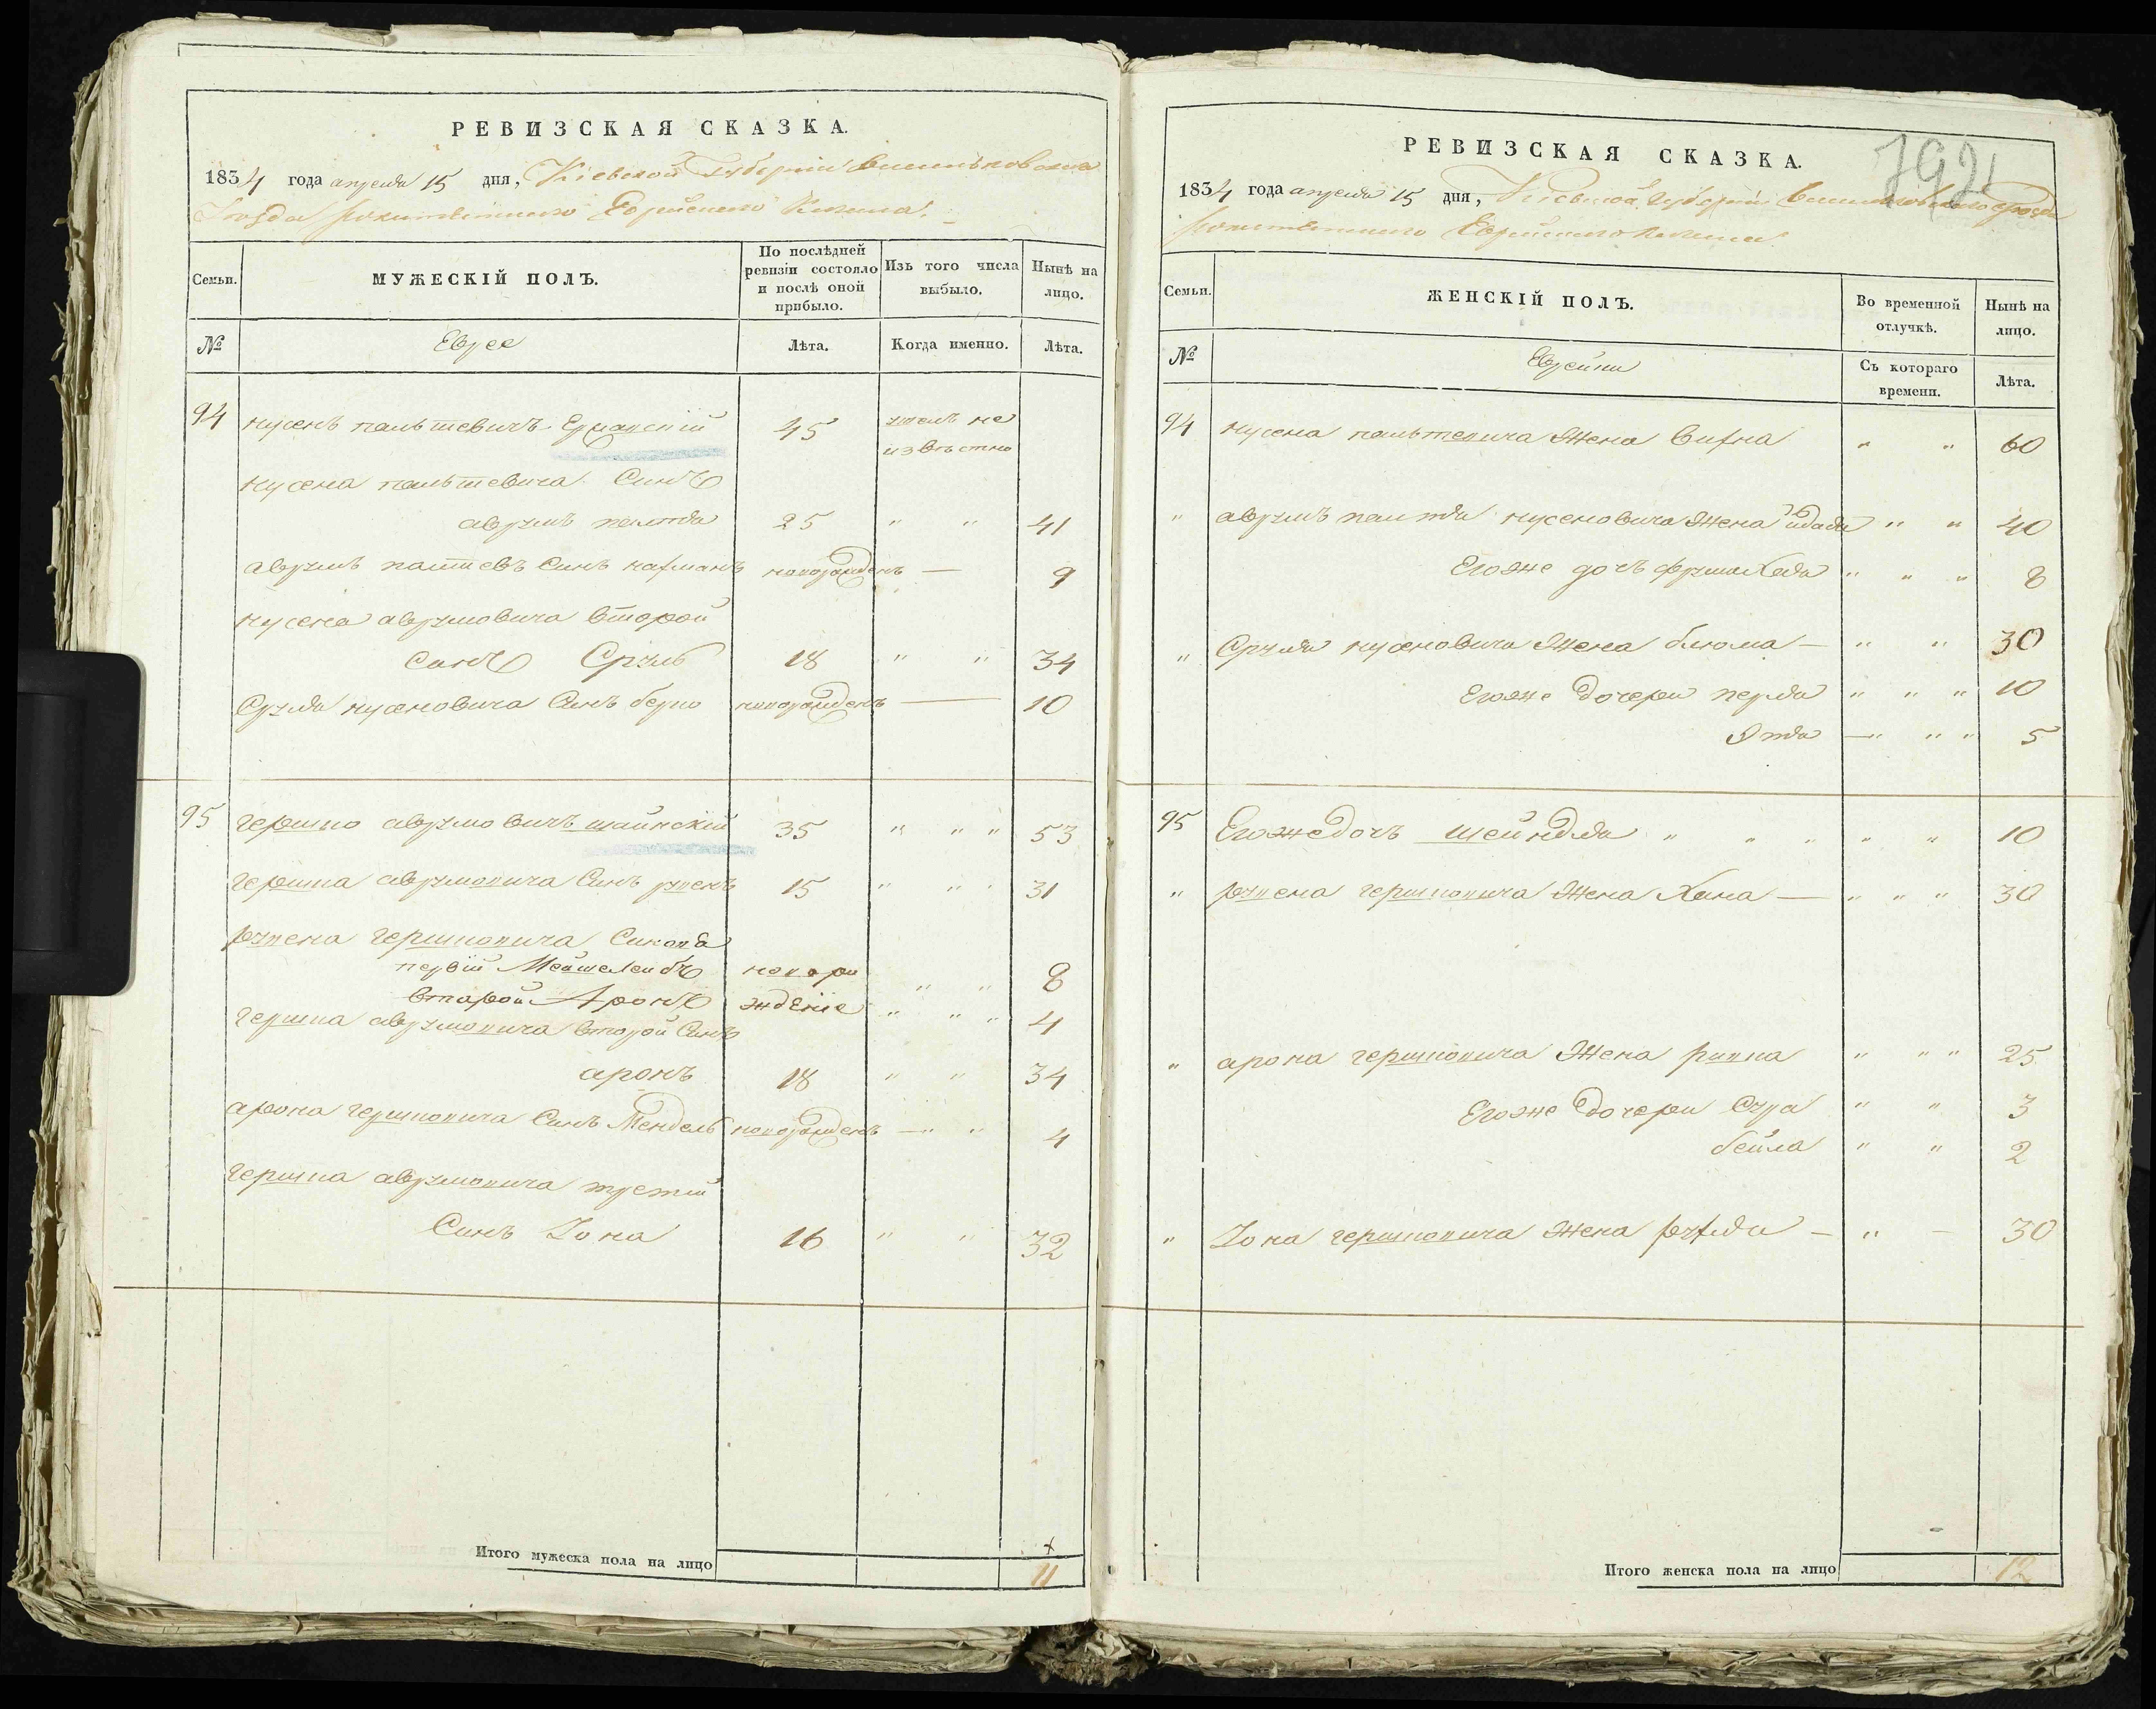 РЕВИЗСКАЯ СКАЗКА.
1834 года апреля 15 дня, Кіевской Губерніи Васильковскаго
Уезда Рокитянского Еврейского Кагала.
Семьи.
МУЖЕСКІЙ ПОЛЪ.
По послѣдней ревизіи состояло и послѣ оной прибыло.
Изъ того числа выбыло.
Нынѣ на лицо.
№
Еврее
Лѣта.
Когда именно.
Лѣта.
94 нусенъ пальтевичъ 45
не
извѣстно
нусена пальтевича Синъ
аврумъ палтя 25 " " 41
Синъ нахманъ новорожденъ — 9
нусена аврумовича второй
синъ Сруль 18 " " 34
Сруля нусеновича Синъ берко новорожденъ — 10
95 гершко аврумовичъ шаинскій 35 " " " 53
гершка аврумовича Синъ рувенъ 15 " " " 31
рувена гершковича Синовя
первій Мошелейбъ новоро " " 8
второй Аронъ жденіе " " " 4
гершка аврумовича второй Синъ
аронъ 18 " " 34
арона гершковича Синъ Мендель новорожденъ — " " 4
гершка аврумовича третій
Синъ Іона 16 " " 32
Итого мужеска пола на лицо
11
РЕВИЗСКАЯ СКАЗКА.
1834 года апреля 15 дня, Кіевской Губерніи Васильковского уезда
Рокитянского Еврейского Кагала.
Семьи.
ЖЕНСКІЙ ПОЛЪ.
Во временной отлучкѣ.
Нынѣ на лицо.
№
Еврейки
Съ котораго времени.
Лѣта.
94 нусена пальтевича Жена " " 60
" аврумъ палтя нусеновича Жена " " 40
Егоже дочъ " " " 8
" Сруля нусеновича Жена блюма — " " 30
Егоже Дочери перля " " " 10
— " " " 5
95 Егоже дочъ шейндля " " " " " 10
" рувена гершковича Жена Хана — " " " 30
" арона гершковича Жена ривка " " " 25
Егоже Дочери Сура " " 3
бейла " " 2
" Іона гершковича Жена рухля — " — 30
Итого женска пола на лицо
12